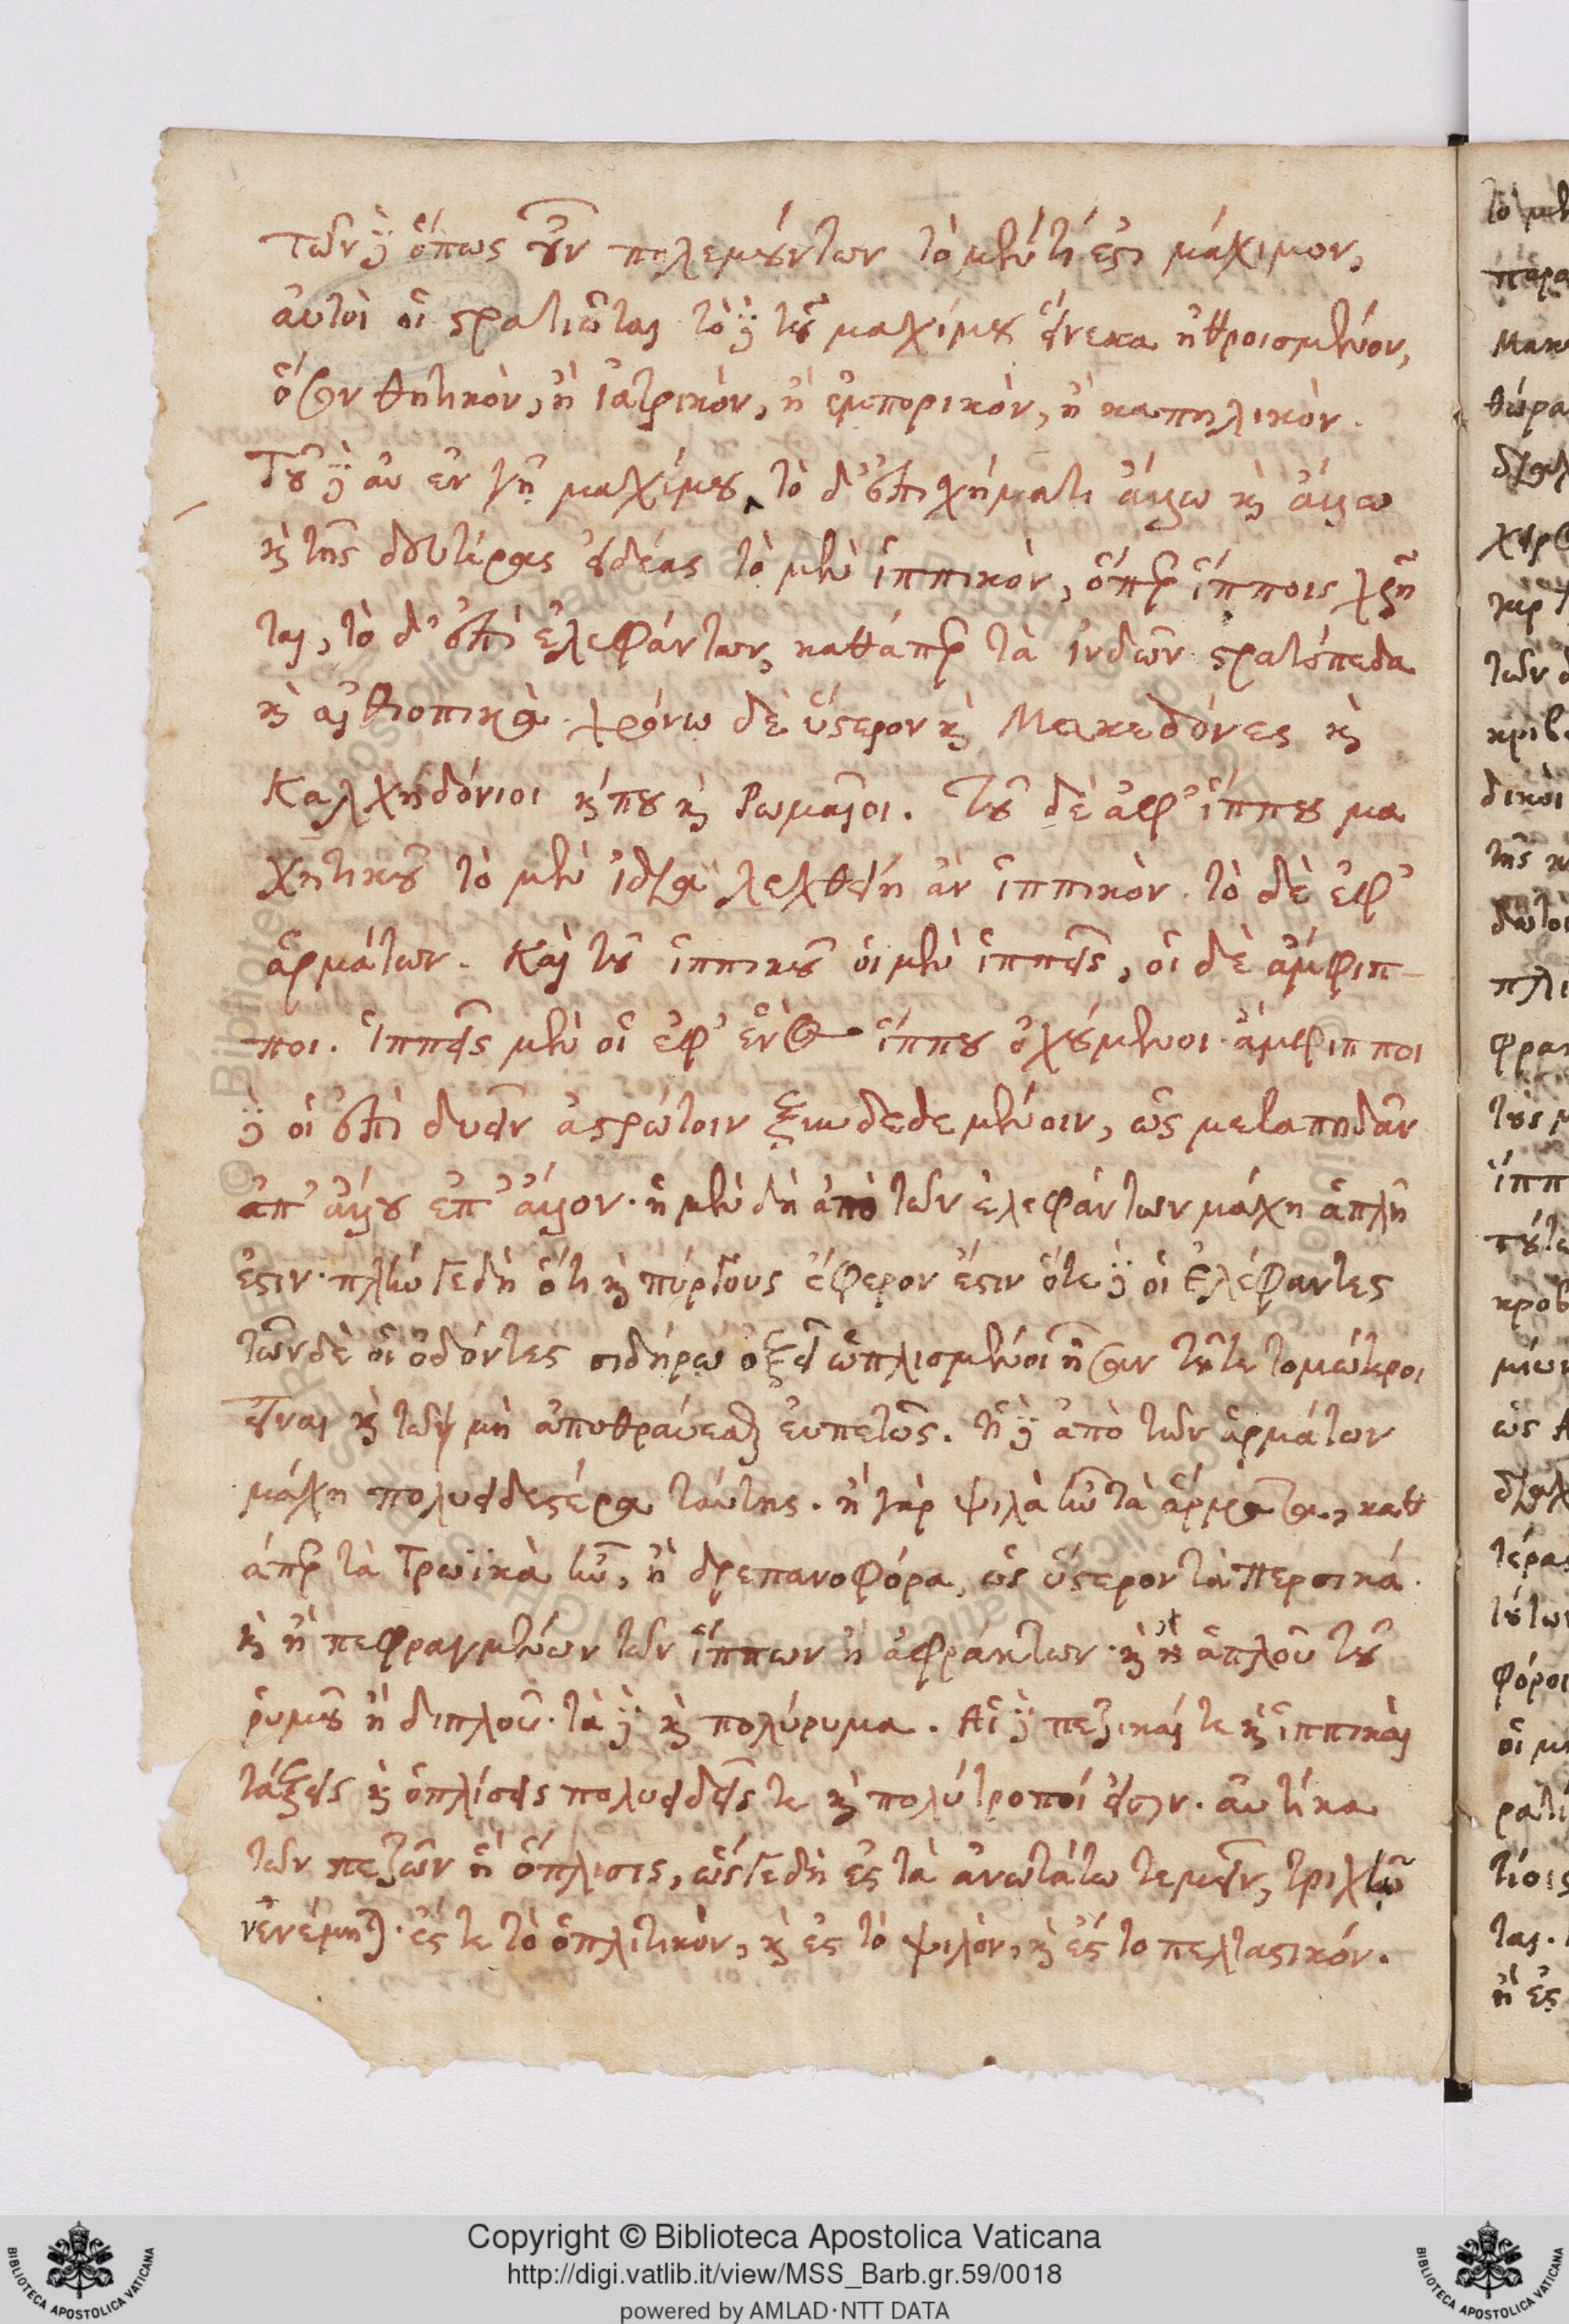 τῶν δὲ ὅπως οὖν πολεμούντων τὸ μέν τί ἐστι μάχιμον,
αὐτοὶ οἱ στρατιῶται τὸ δὲ τοῦ μαχίμου εἵνεκα ἠθροισμένον,
ὅσον θητικὸν, ἢ ἰατρικὸν, ἢ ἐμπορικὸν, ἢ καπηλικὸν.
Τοῦ δὲ αὖ ἐν γῇ μαχίμου τὸ δ' ἐπὶ ὀχήματι ἄλλω καὶ ἄλλω
καὶ τῆς δευτέρας ἰδέας τὸ μὲν ἱππικὸν, ὅπερ ἵπποις χρῆ
ται, τὸ δ' ἐπὶ ἐλεφάντων, καθάπερ τὰ ἰνδῶν στρατόπεδα
καὶ αἰθιοπικὰ. χρόνω δὲ ὕστερον καὶ Μακεδόνες καὶ
Καλχηδόνιοι καί που καὶ Ρωμαῖοι. Τοῦ δὲ ἀφ' ἵππου μα
χητικοῦ τὸ μὲν ἰδία λεχθείη ἂν ἱππικὸν. τὸ δὲ ἐφ'
ἁρμάτων. Καὶ τοῦ ἱππικοῦ οἱ μὲν ἱππεῖς, οἱ δὲ ἄμφιπ-
ποι. ἱππεῖς μὲν οἱ ἐφ' ἑνὸς ἵππου ὀχούμενοι. ἄμφιπποι
δὲ οἱ ἐπὶ δυεῖν ἀστρώτοιν ξυνδεδεμένοιν, ὡς μεταπηδᾶν
ἀπ' ἄλλου ἐπ' ἄλλον. ἡ μὲν δὴ ἀπὸ τῶν ἐλεφάντων μάχη ἁπλῆ
ἐστιν. πλήν γε δὴ ὅτι καὶ πύργους ἔφερον ἔστιν ὅτε δὲ οἱ ἐλέφαντες
τῶν δὲ οἱ ὀδόντες σιδήρω ὀξεῖ ὡπλισμένοι ἦσαν τοῦ τε τομώτεροι
εἶναι καὶ τοῦ μὴ ἀποθραύεσθαι εὐπετῶς. ἡ δὲ ἀπὸ τῶν ἁρμάτων
μάχη πολυειδεστέρα ταύτης. ἢ γὰρ ψιλὰ ἦν τὰ ἅρματα, καθ
άπερ τὰ Τρωϊκὰ ἦν, ἢ δρεπανοφόρα, ὡς ὕστερον τὰ περσικά.
καὶ ἢ πεφραγμένων τῶν ἵππων ἢ ἀφράκτων. καὶ ἢ ἁπλοῦ τοῦ
ῥυμοῦ ἢ διπλοῦ. τὰ δὲ καὶ πολύρυμα. Αἱ δὲ πεζικαί τε καὶ ἱππικαὶ
τάξεις καὶ ὁπλίσεις πολυειδεῖς τε καὶ πολύτροποί εἰσιν. αὐτίκα
τῶν πεζῶν ἡ ὅπλισις, ὥς γε δὴ ἐς τὰ ἀνωτάτω τεμεῖν, τριχῇ
νενέμηται. ἔς τε τὸ ὁπλιτικὸν, καὶ ἐς τὸ ψιλὸν, καὶ ἐς το πελταστικόν.
Copyright © Biblioteca Apostolica Vaticana
http://digi.vatlib.it/view/MSS_Barb.gr.59/0018
powered by AMLAD·NTT DATA